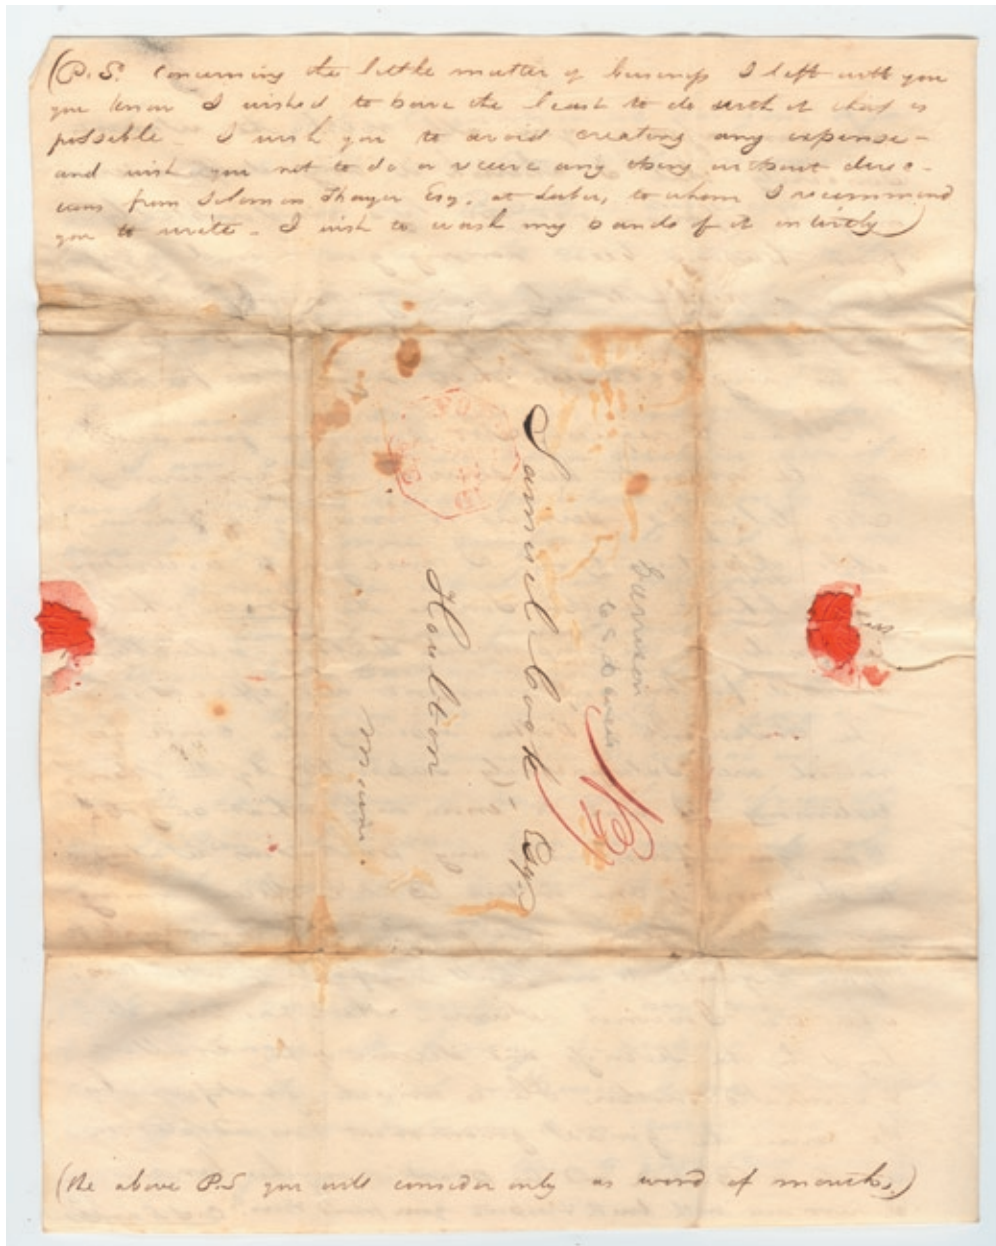 (P.S. Concerning the little matter of business I left with you
you know I wished to have the least to do with it that is
possible – I wish you to avoid creating any expense –
and wish you not to do or receive any thing without direc-
tions from Solomon Thayer Esq. at Lubec, to whom I recommend
you to write – I wish to wash my hands of it entirely –)
Samuel Cook Esqr
Houlton
Maine.
Garrison
(the above P.S you will consider only as word of mouth.)